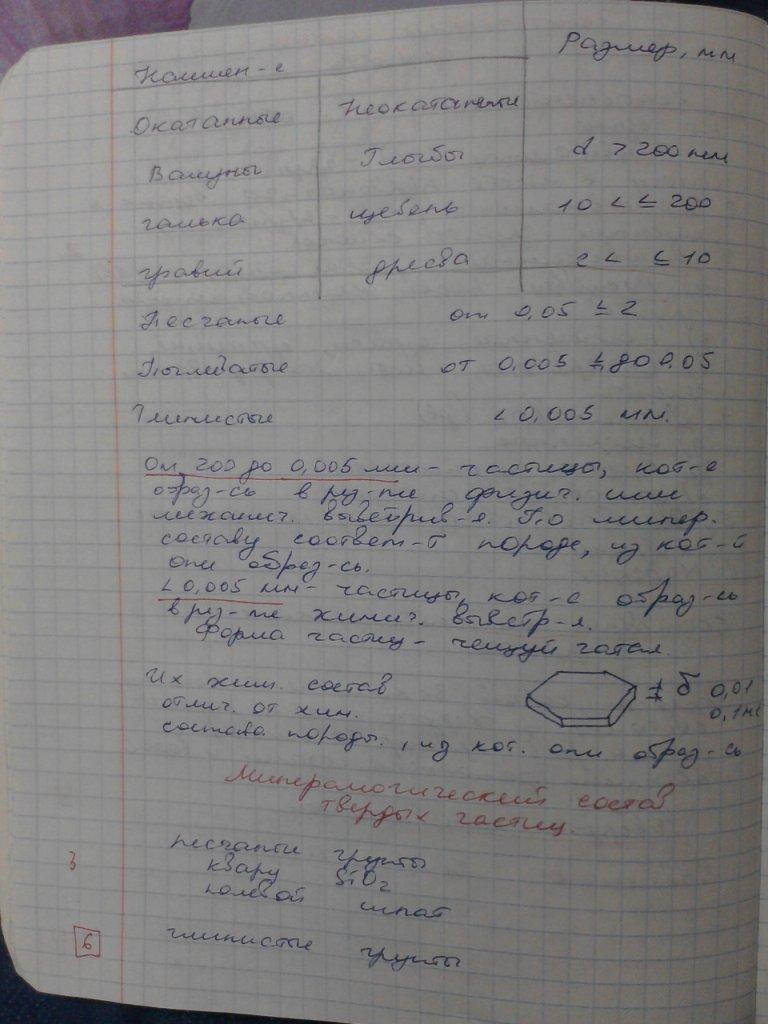 Наимен-е Размер, мм
Окатанные Неокатанные
Валуны Глыбы d > 200 мм
галька щебень 10 < ≤ 200
гравий дресва 2 < ≤ 10
Песчаные от 0,05 ≤ 2
Пылеватые от 0,005 ≤ до 0.05
Глинистые < 0,005 мм.
От 200 до 0,005 мм - частицы, кот-е
образ-сь в рез-те физич. или
механич. выветрив-я. По минер.
составу соответ-т породе, из кот-й
они образ-сь.
< 0,005 мм - частицы, кот-е образ-сь
в рез-те химич. выветр-я.
Форма частиц - чешуйчатая.
Их хим. состав
отлич. от хим. δ 0,01
0,1
состава породы, из кот. они образ-сь
Минералогический состав
твердых частиц.
песчаные грунты
3 кварц SiO2
полевой шпат
6 глинистые грунты